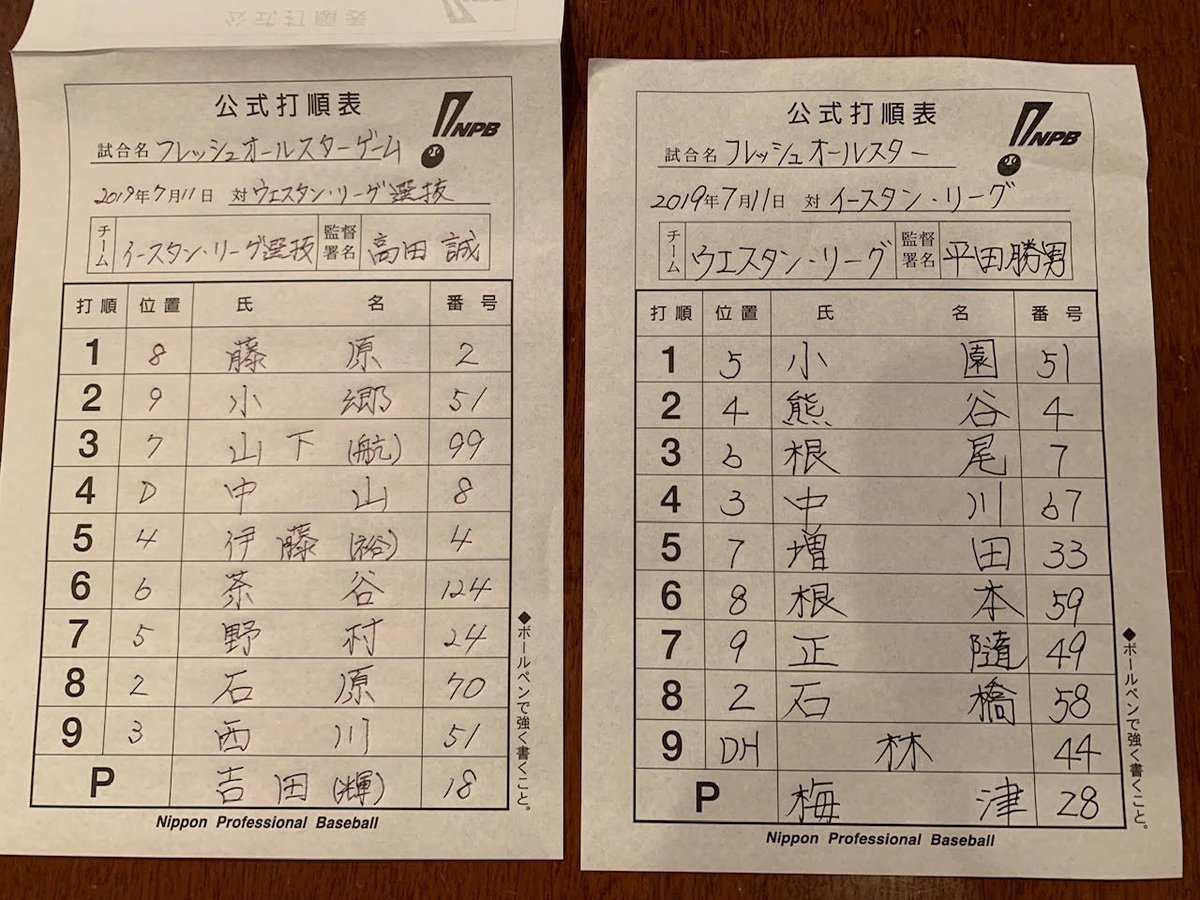 公式打順表
NPB
試合名 フレッシュオールスターゲーム
2019年7月11日 対ウエスタン・リーグ選抜
チーム イースタン・リーグ選抜 監督署名 高田 誠
打順 位置 氏名 番号
1 8 藤原 2
2 9 小郷 51
3 7 山下(航) 99
4 D 中山 8
5 4 伊藤(裕) 4
6 6 茶谷 124
7 5 野村 24
8 2 石原 70
9 3 西川 51
P 吉田(輝) 18
Nippon Professional Baseball
◆ボールペンで強く書くこと。
公式打順表
NPB
試合名 フレッシュオールスター
2019年7月11日 対 イースタン・リーグ
チーム ウエスタン・リーグ 監督署名 平田勝男
打順 位置 氏名 番号
1 5 小園 51
2 4 熊谷 4
3 6 根尾 7
4 3 中川 67
5 7 増田 33
6 8 根本 59
7 9 正隨 49
8 2 石橋 58
9 DH 林 44
P 梅津 28
Nippon Professional Baseball
◆ボールペンで強く書くこと。